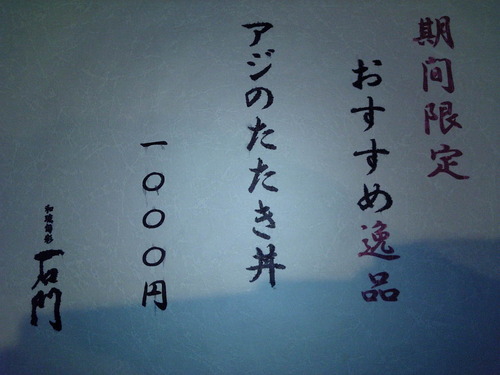 期間限定
おすすめ逸品
アジのたたき丼
一〇〇〇円
石門